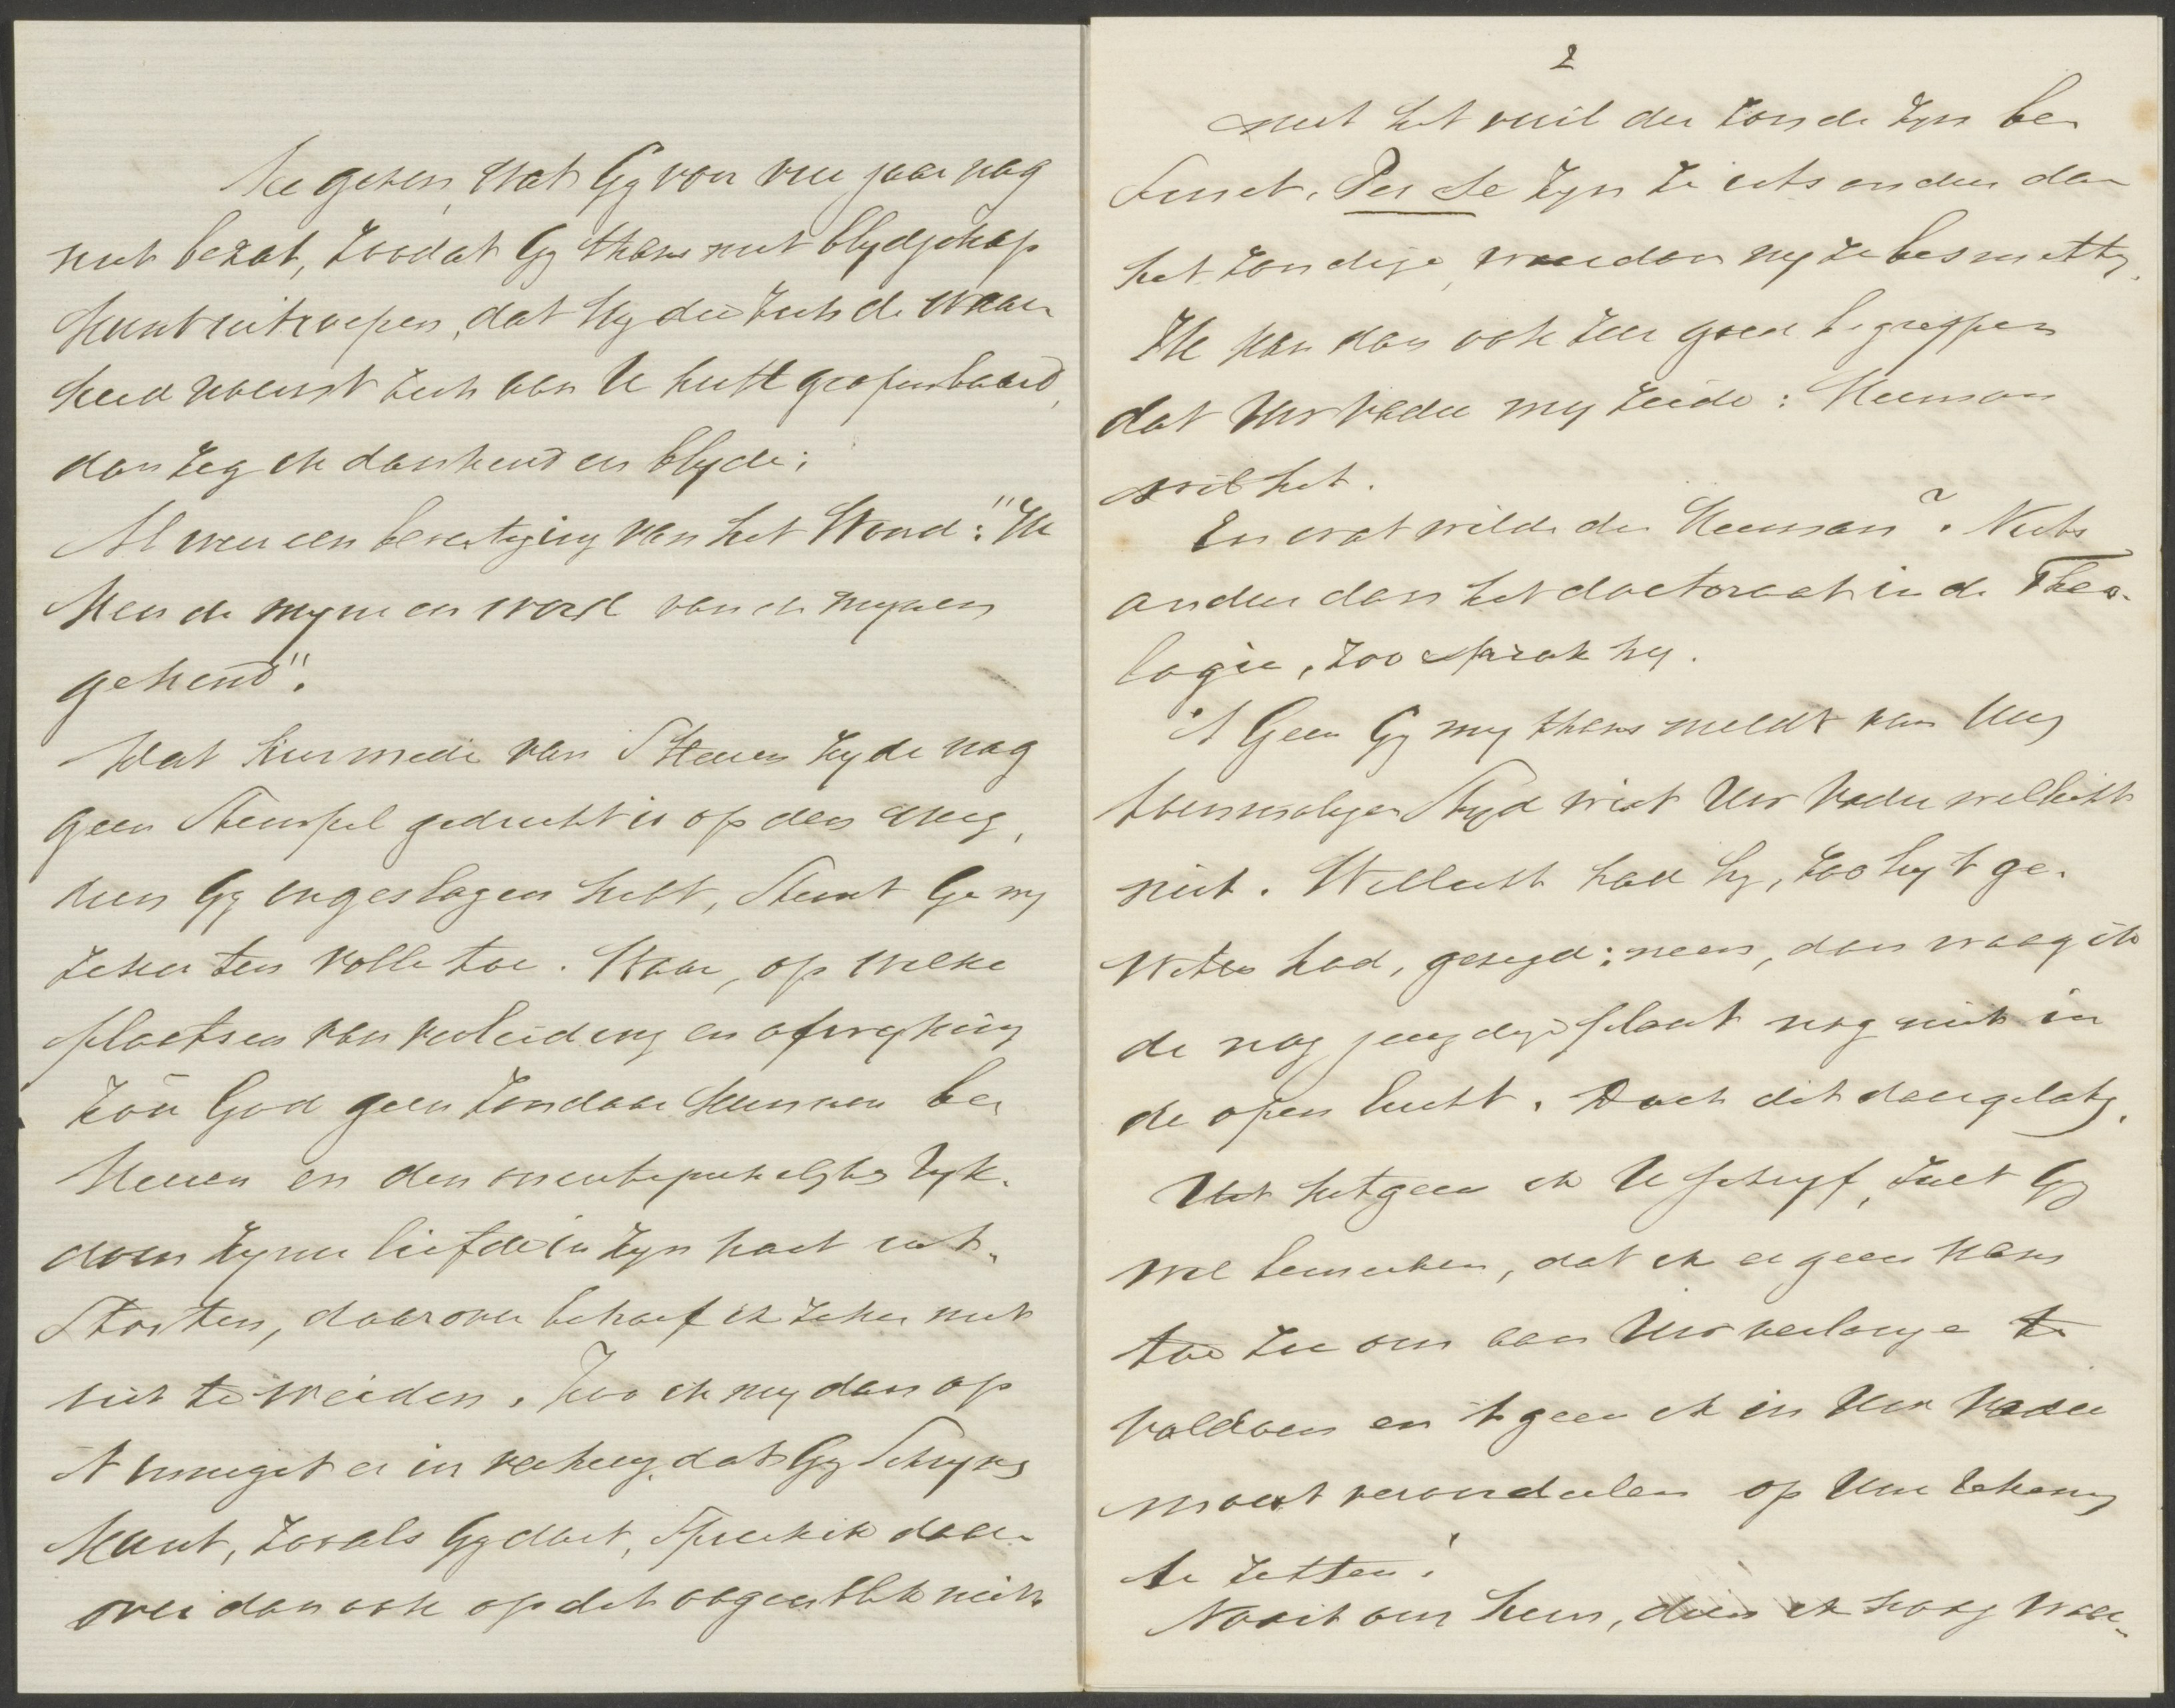 te geven, wat Gy voor vier jaar nog
niet bezat, zoodat Gy thans met blydschap
kunt uitroepen, dat Hy die zich de waar
heid noemt zich aan U heeft geopenbaard,
dan zeg ik dankend en blyde:
Al weer een bevestiging van het Woord: "Ik
ken de mynen en word van de mynen
gekend".
Dat hiermede van 's Heeren zyde nog
geen Stempel gedrukt is op den weg,
dien Gy ingeslagen hebt, Stemt Ge my
zeker ten volle toe. Waar, op welke
plaatsen van verleiding en afwyking
zou God geen zondaar kunnen be
keeren en den onuitsprekelyken ryk-
dom zyner liefde in zyn hart uit-
Storten, daarover behoef ik zeker niet
uit te weiden. Hoe ik my dan op
't innigst er in verheug, dat Gy Schryven
kunt, zooals Gy doet, Spreek ik daar-
over dan ook op dit oogenblik niet.
2
met het vuil der zonde zyn be
smet. Per se zyn ze iets anders dan
het zondige, waardoor wy ze besmetten.
Ik kan dan ook zeer goed begrypen
dat Uw Vader my zeide: Herman
wil het.
En wat wilde die Herman? Niets
anders dan het doctoraat in de Theo-
logie, zoo sprak hy.
't Geen Gy my thans meldt van Uwen
toenmaligen Stryd wist Uw Vader wellicht
niet. Wellicht had hy, zoo hy 't ge-
weten had, gezegd: neen, dan waag ik
de nog jeugdige plant nog niet in
de open lucht. Doch dit daargelaten.
Uit hetgeen ik U schryf, zult Gy
wel bemerken, dat ik er geen kans
toe zie om aan Uw verlangen te
voldoen en 't geen ik in Uw Vader
moest veroordeelen op Uwe rekening
te zetten!
Nooit om hem, dien ik hoog waar-